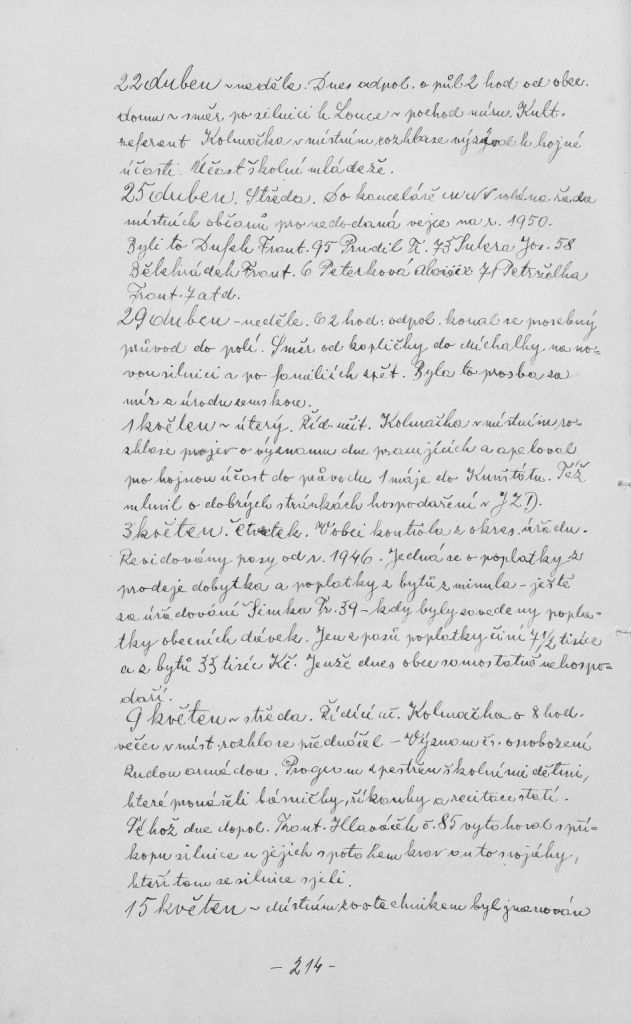 22 duben - neděle. Dnes odpol. o půl 2 hod od obec.
domu - směr po silnici k Louce - pochod míru. Kult.
referent Kolmačka v místním rozhlase výzýval k hojné
účasti. Účast školní mládeže.
25 duben. Středa. Do kanceláře MNV volána řada
místních občanů pro nedodaná vejce na r. 1950.
Byli to Dušek Frant. 95 Prudil K. 73 Sutera Jos. 58
Bělehrádek Frant. 6 Peterková Aloisie 71 Petrželka
Frant. 7 atd.
29 duben - neděle. O 2 hod. odpol. konal se prosebný
průvod do polí. Směr od kapličky do Michalky na no-
vou silnici a po familiích zpět. Byla to prosba za
mír a úrodu zemskou.
1 květen - úterý. Říd. učit. Kolmačka v místním ro-
zhlase projev o významu dne pracujících a apeloval
po hojnou účast do průvodu 1 máje do Kunštátu. Též
mluvil o dobrých stránkách hospodaření v JZD.
3 květen. Čtvrtek. V obci kontrola z okres. úřadu.
Revidovány pasy od r. 1946. Jedná se o poplatky z
prodeje dobytka a poplatky z bytů z minula - ještě
za úřadování Šimka Fr. 39 - kdy byly zavedeny popla-
tky obecních dávek. Jen z pasů poplatky činí 7 1/2 tisíce
a z bytů 33 tisíc Kč. Jenže dnes obec samostatně nehospo-
daří.
9 květen - středa. Řídící uč. Kolmačka o 8 hod.
večer v míst. rozhlase přednášel - Význam čs. osvobození
Rudou armádou. Program zpestřen školními dětmi,
které pronášeli básničky, říkanky a recitace statí.
Téhož dne dopol. Frant. Hlaváček č. 85 vytahoval s pří-
kopu silnice u jejich spoto kem krav auto vojáky,
kteří tam se silnice sjeli.
15 květen - Místním zootechnikem byl jmenován
- 214 -